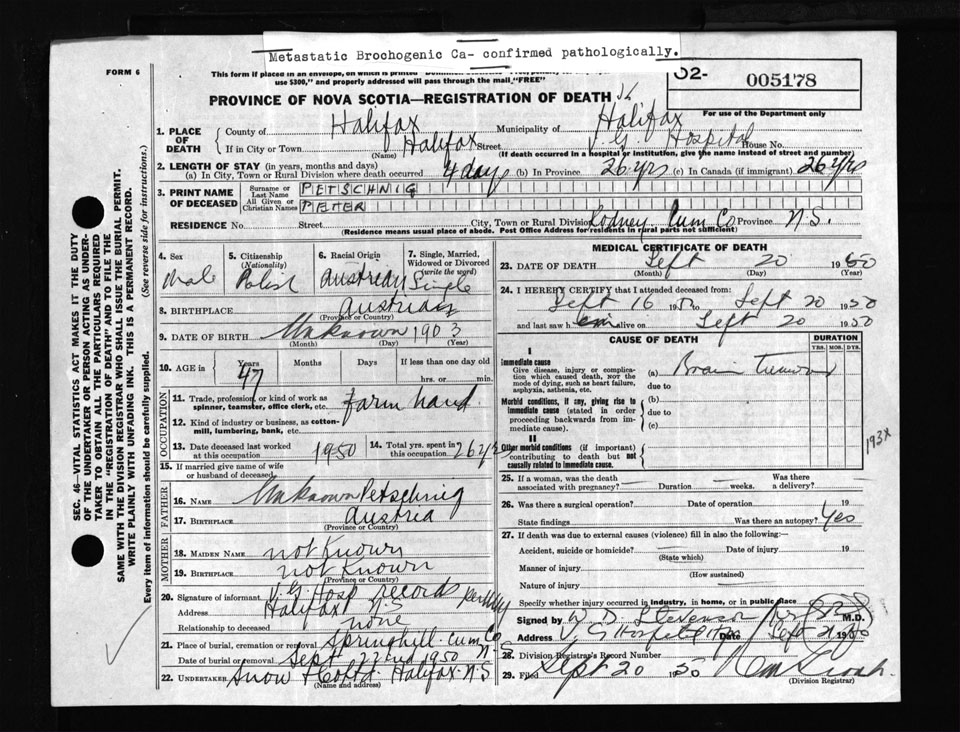 Metastatic Brochogenic Ca- confirmed pathologically.
FORM 6
This form if placed in an envelope, on which is printed
use $300," and properly addressed will pass through the mail, "FREE"
O2-
005178
PROVINCE OF NOVA SCOTIA—REGISTRATION OF DEATH
For use of the Department only
1. PLACE OF DEATH
County of Halifax Municipality of Halifax
If in City or Town Halifax Street V.G. Hospital House No.
(Name) (If death occurred in a hospital or institution, give the name instead of street and number)
2. LENGTH OF STAY (in years, months and days)
(a) In City, Town or Rural Division where death occurred 4 days (b) In Province 26 yrs (c) In Canada (if immigrant) 26 yrs
3. PRINT NAME OF DECEASED
Surname or Last Name PETSCHNIG
All Given or Christian Names PETER
RESIDENCE No. Street City, Town or Rural Division Rodney Cum Co Province N.S.
(Residence means usual place of abode. Post Office Address for residents in rural parts not sufficient)
4. Sex Male
5. Citizenship (Nationality) Polish
6. Racial Origin Austrian
7. Single, Married, Widowed or Divorced (write the word) Single
8. BIRTHPLACE Austrian
(Province or Country)
9. DATE OF BIRTH Unknown 1903
(Month) (Day) (Year)
10. AGE in Years 47 Months Days If less than one day old
hrs. or min.
OCCUPATION
11. Trade, profession or kind of work as spinner, teamster, office clerk, etc. farm hand
12. Kind of industry or business, as cotton-mill, lumbering, bank, etc.
13. Date deceased last worked at this occupation 1950
14. Total yrs. spent in this occupation 26 yrs
15. If married give name of wife or husband of deceased.
FATHER
16. NAME Unknown Petschnig
17. BIRTHPLACE Austria
(Province or Country)
MOTHER
18. MAIDEN NAME not Known
19. BIRTHPLACE not Known
(Province or Country)
20. Signature of informant V.G Hosp records
Address Halifax N.S
Relationship to deceased none
21. Place of burial, cremation or removal Springhill Cum Co N.S
Date of burial or removal Sept 22nd 1950
22. UNDERTAKER Snow & Co Ltd. Halifax N.S
(Name and address)
MEDICAL CERTIFICATE OF DEATH
23. DATE OF DEATH Sept 20 1950
(Month) (Day) (Year)
24. I HEREBY CERTIFY that I attended deceased from:
Sept 16 1950 Sept 20 1950
and last saw h im alive on Sept 20 1950
CAUSE OF DEATH
DURATION
YRS. MOS. DYS.
I
Immediate cause
Give disease, injury or complication which caused death, NOT the mode of dying, such as heart failure, asphyxia, asthenia, etc.
(a) Brain tumor
due to
Morbid conditions, if any, giving rise to immediate cause (stated in order proceeding backwards from immediate cause).
(b)
due to
(c)
II
Other morbid conditions (if important) contributing to death but not causally related to immediate cause.
193X
25. If a woman, was the death associated with pregnancy? Duration weeks. Was there a delivery?
26. Was there a surgical operation? Date of operation 19
State findings Was there an autopsy? Yes
27. If death was due to external causes (violence) fill in also the following:—
Accident, suicide or homicide? Date of injury 19
(State which)
Manner of injury
(How sustained)
Nature of injury
Specify whether injury occurred in industry, in home, or in public place
Signed by Stevenson M.D.
Address V G Hospital Date Sept 21 1950
28. Division Registrar's Record Number
29. Filed Sept 20 1950
(Division Registrar)
SEC. 46—VITAL STATISTICS ACT MAKES IT THE DUTY
OF THE UNDERTAKER OR PERSON ACTING AS UNDER-
TAKER TO OBTAIN ALL THE PARTICULARS REQUIRED
IN THE "REGISTRATION OF DEATH" AND TO FILE THE
SAME WITH THE DIVISION REGISTRAR WHO SHALL ISSUE THE BURIAL PERMIT.
WRITE PLAINLY WITH UNFADING INK. THIS IS A PERMANENT RECORD.
Every item of information should be carefully supplied. (See reverse side for instructions.)